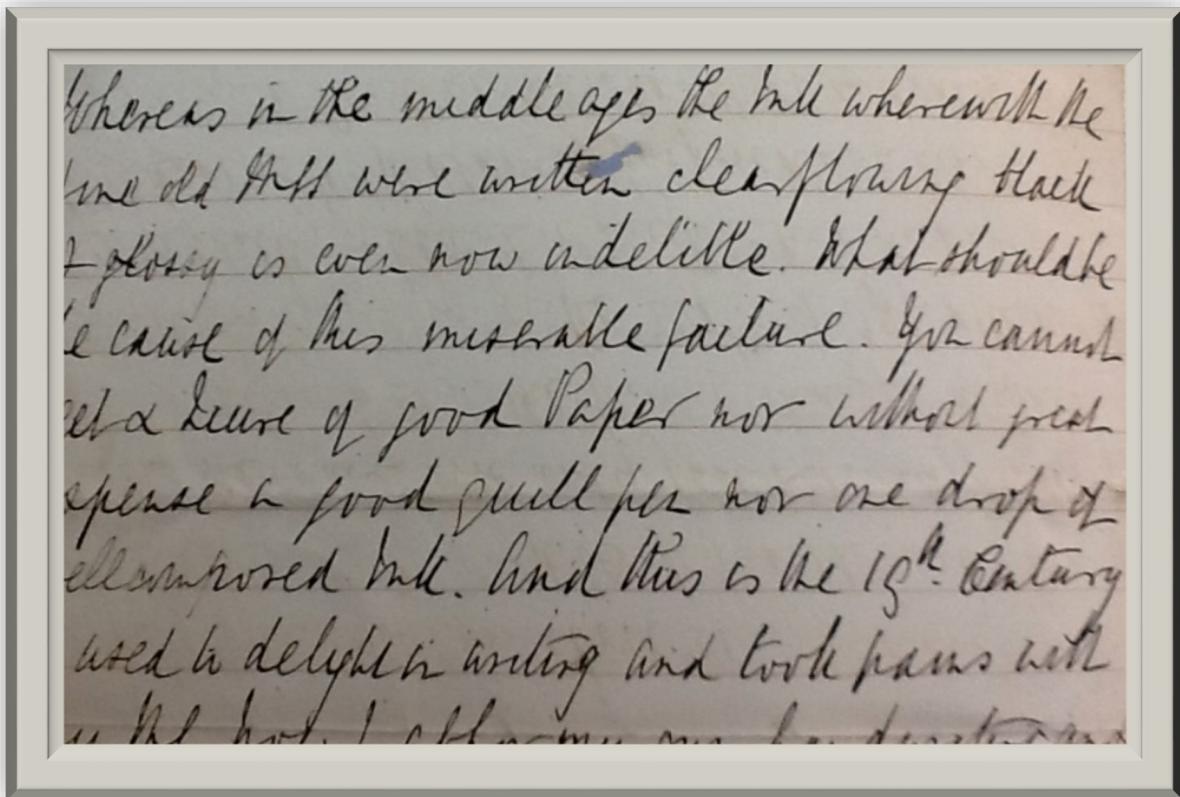 Whereas in the middle ages the Ink wherewith the
fine old MSS were written clear flowing black
& glossy is even now indelible. What should be
e cause of this miserable failure. You cannot
et a Quire of good Paper nor without great
xpense a good quill pen nor one drop of
ell composed Ink. And this is the 19th. Century
used to delight in writing and took pains with